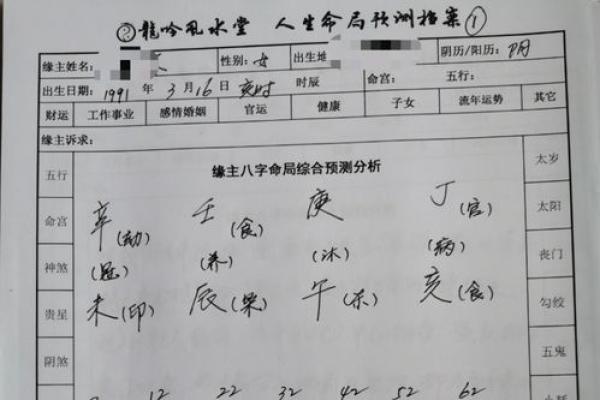 ②龍吟风水堂 人生命局预测档案①
缘主姓名: 性别: 女 出生地 阴历/阳历: 阴
出生日期: 1991 年 3 月 16 日 亥时 时辰 命宫: 五行:
财运 工作事业 感情婚姻 官运 健康 子女 流年运势 其它
缘主诉求:
五行 缘主八字命局综合预测分析 太岁
命宫 辛(劫) 壬(食) 庚 丁(官) 太阳
神煞 (冠) (养) (沐) (病) 丧门
贵星 未(印) 辰(枭) 午 亥(食) 勾绞
阴煞 五鬼
12 22 32 42 52 62